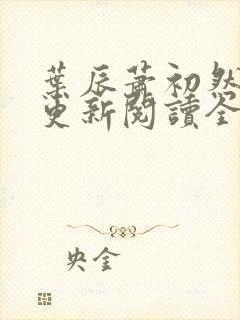 葉辰蕭初然
更新閱讀全
央金